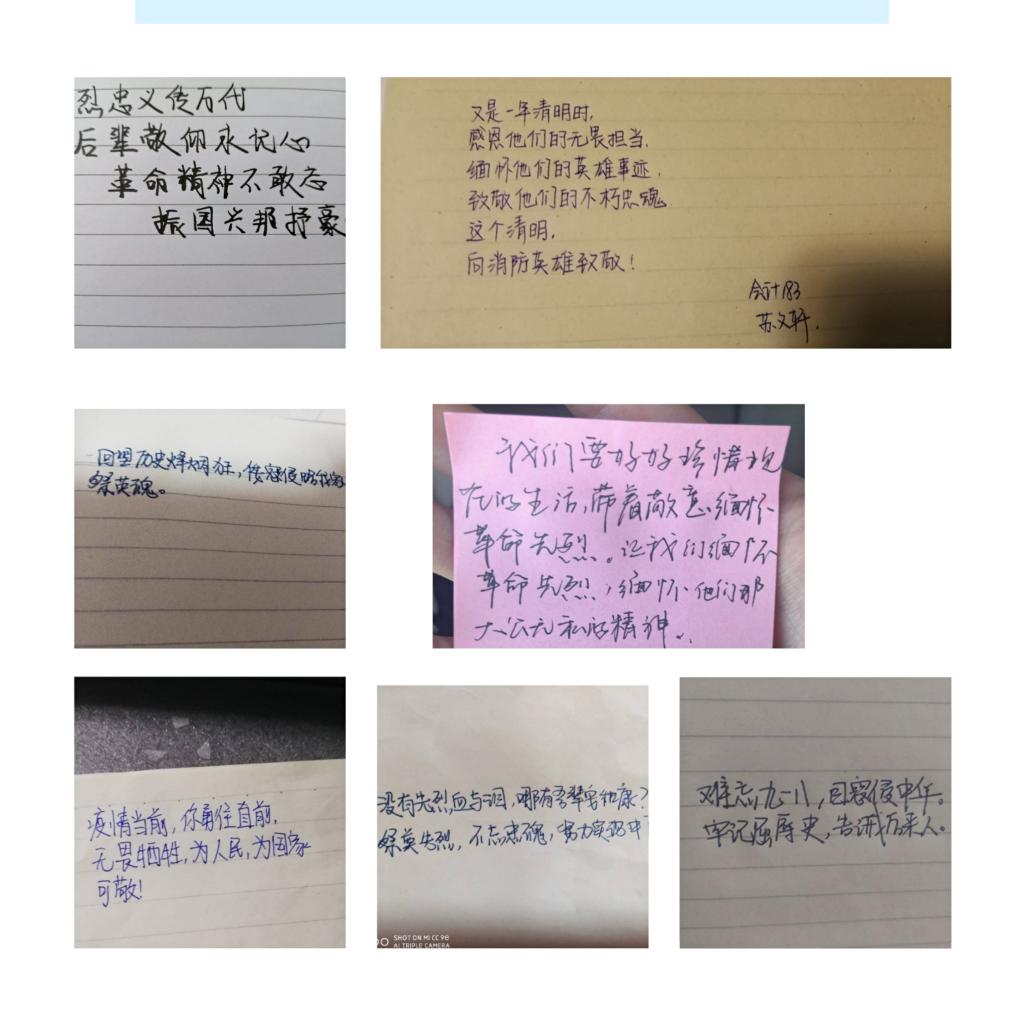 烈忠义传万代
后辈敬仰永记心
革命精神不敢忘
振国兴邦抒豪
又是一年清明时,
感恩他们的无畏担当,
缅怀他们的英雄事迹,
致敬他们的不朽忠魂
这个清明,
向消防英雄致敬!
会计183
苏文轩.
回望历史烽烟狂,倭寇侵略
祭英魂。
我们要好好珍惜现
在的生活,带着敬意缅怀
革命先烈。让我们缅怀
革命先烈,缅怀他们那
大公无私的精神.
疫情当前,你勇往直前.
无畏牺牲,为人民,为国家
可敬!
没有先烈血与泪,哪有吾辈安和康?
祭奠先烈,不忘忠魂,努力实现中
SHOT ON MI CC 9e
AI TRIPLE CAMERA
难忘九一八,日寇侵中华。
牢记屈辱史,告诫万来人。